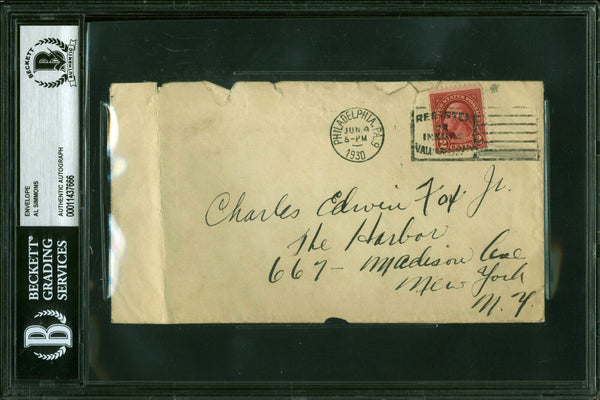 BECKETT
AUTHENTIC
ENVELOPE
AL SIMMONS
AUTHENTIC AUTOGRAPH
00011437666
BECKETT
GRADING
SERVICES
PHILADELPHIA, PA. 9
JUN 4
6-PM
1930
REGISTER
OR
INSURE
CENTS
Charles Edwin Fox Jr.
The Harbor
667- Madison Ave
New York
N.Y.